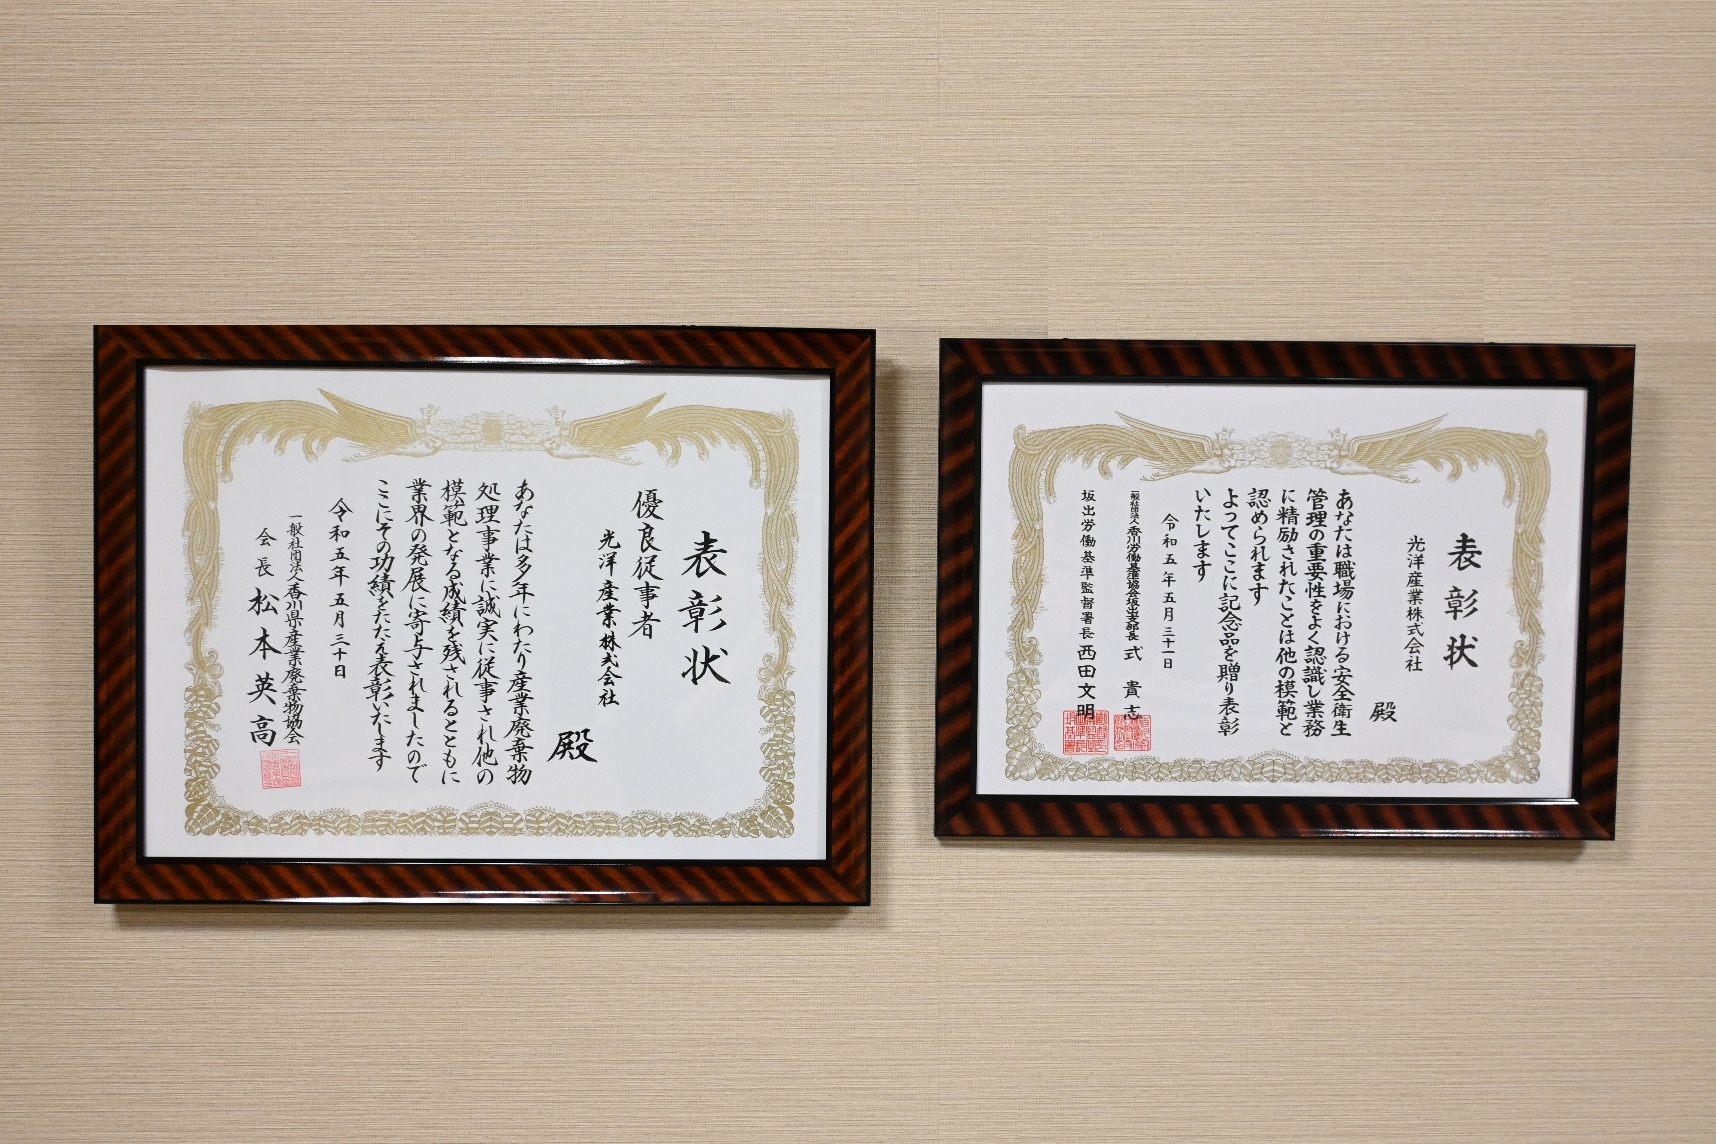 表彰状
優良従事者
光洋産業株式会社
殿
あなたは多年にわたり産業廃棄物
処理事業に誠実に従事され他の
模範となる成績を残されるとともに
業界の発展に寄与されましたので
ここにその功績をたたえ表彰いたします
令和五年五月三十日
一般社団法人香川県産業廃棄物協会
会長 松本英高
表彰状
光洋産業株式会社
殿
あなたは職場における安全衛生
管理の重要性をよく認識し業務
に精励されたことは他の模範と
認められます
よってここに記念品を贈り表彰
いたします
令和五年五月三十一日
一般社団法人香川労働基準協会坂出支部長 式 貴志
坂出労働基準監督署長 西田文明